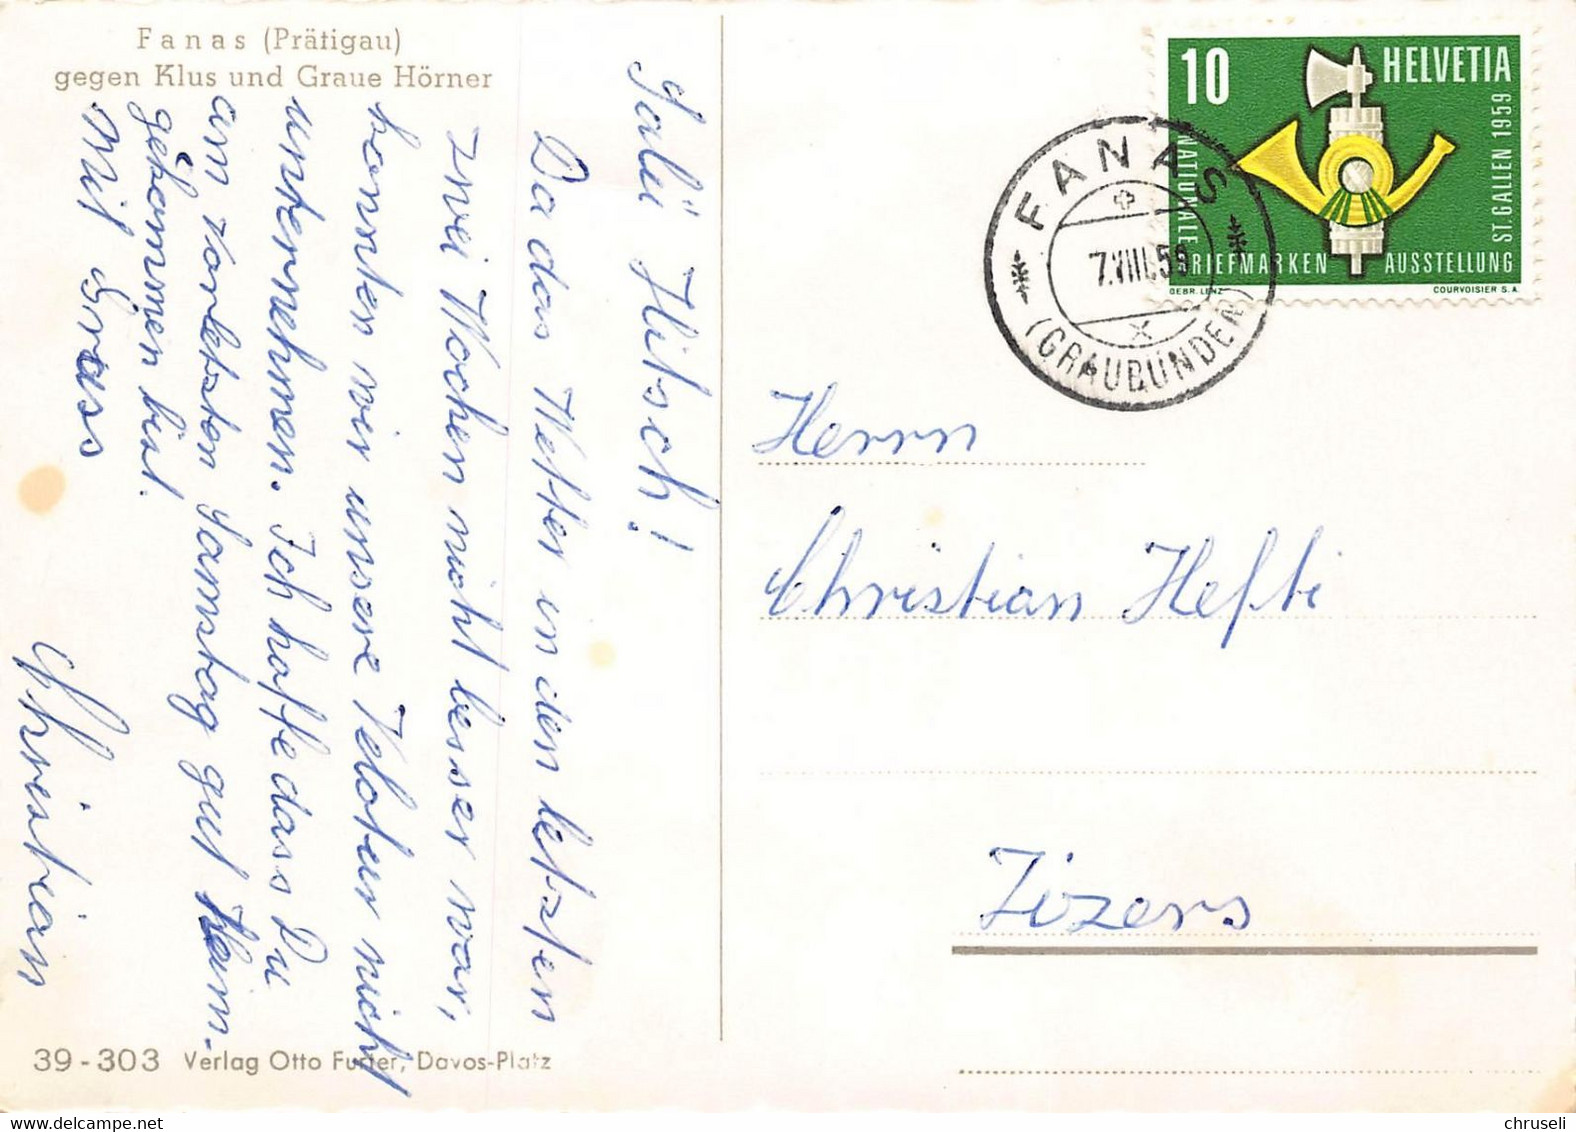 Fanas (Prätigau)
gegen Klus und Graue Hörner
Salü Hitsch!
Da das Wetter in den letzten
zwei Wochen nicht besser war,
konnten wir unsere Velotur nicht
unternehmen. Ich hoffe dass Du
am vorletzten Samstag gut heim-
gekommen bist.
Mit Gruss
Christian
39-303 Verlag Otto Furter, Davos-Platz
10 HELVETIA
NATIONALE BRIEFMARKEN AUSSTELLUNG ST. GALLEN 1959
GEBR. LENZ COURVOISIER S.A.
FANAS
7.VIII.59
(GRAUBÜNDEN)
Herrn
Christian Hefti
Zizers
chruseli